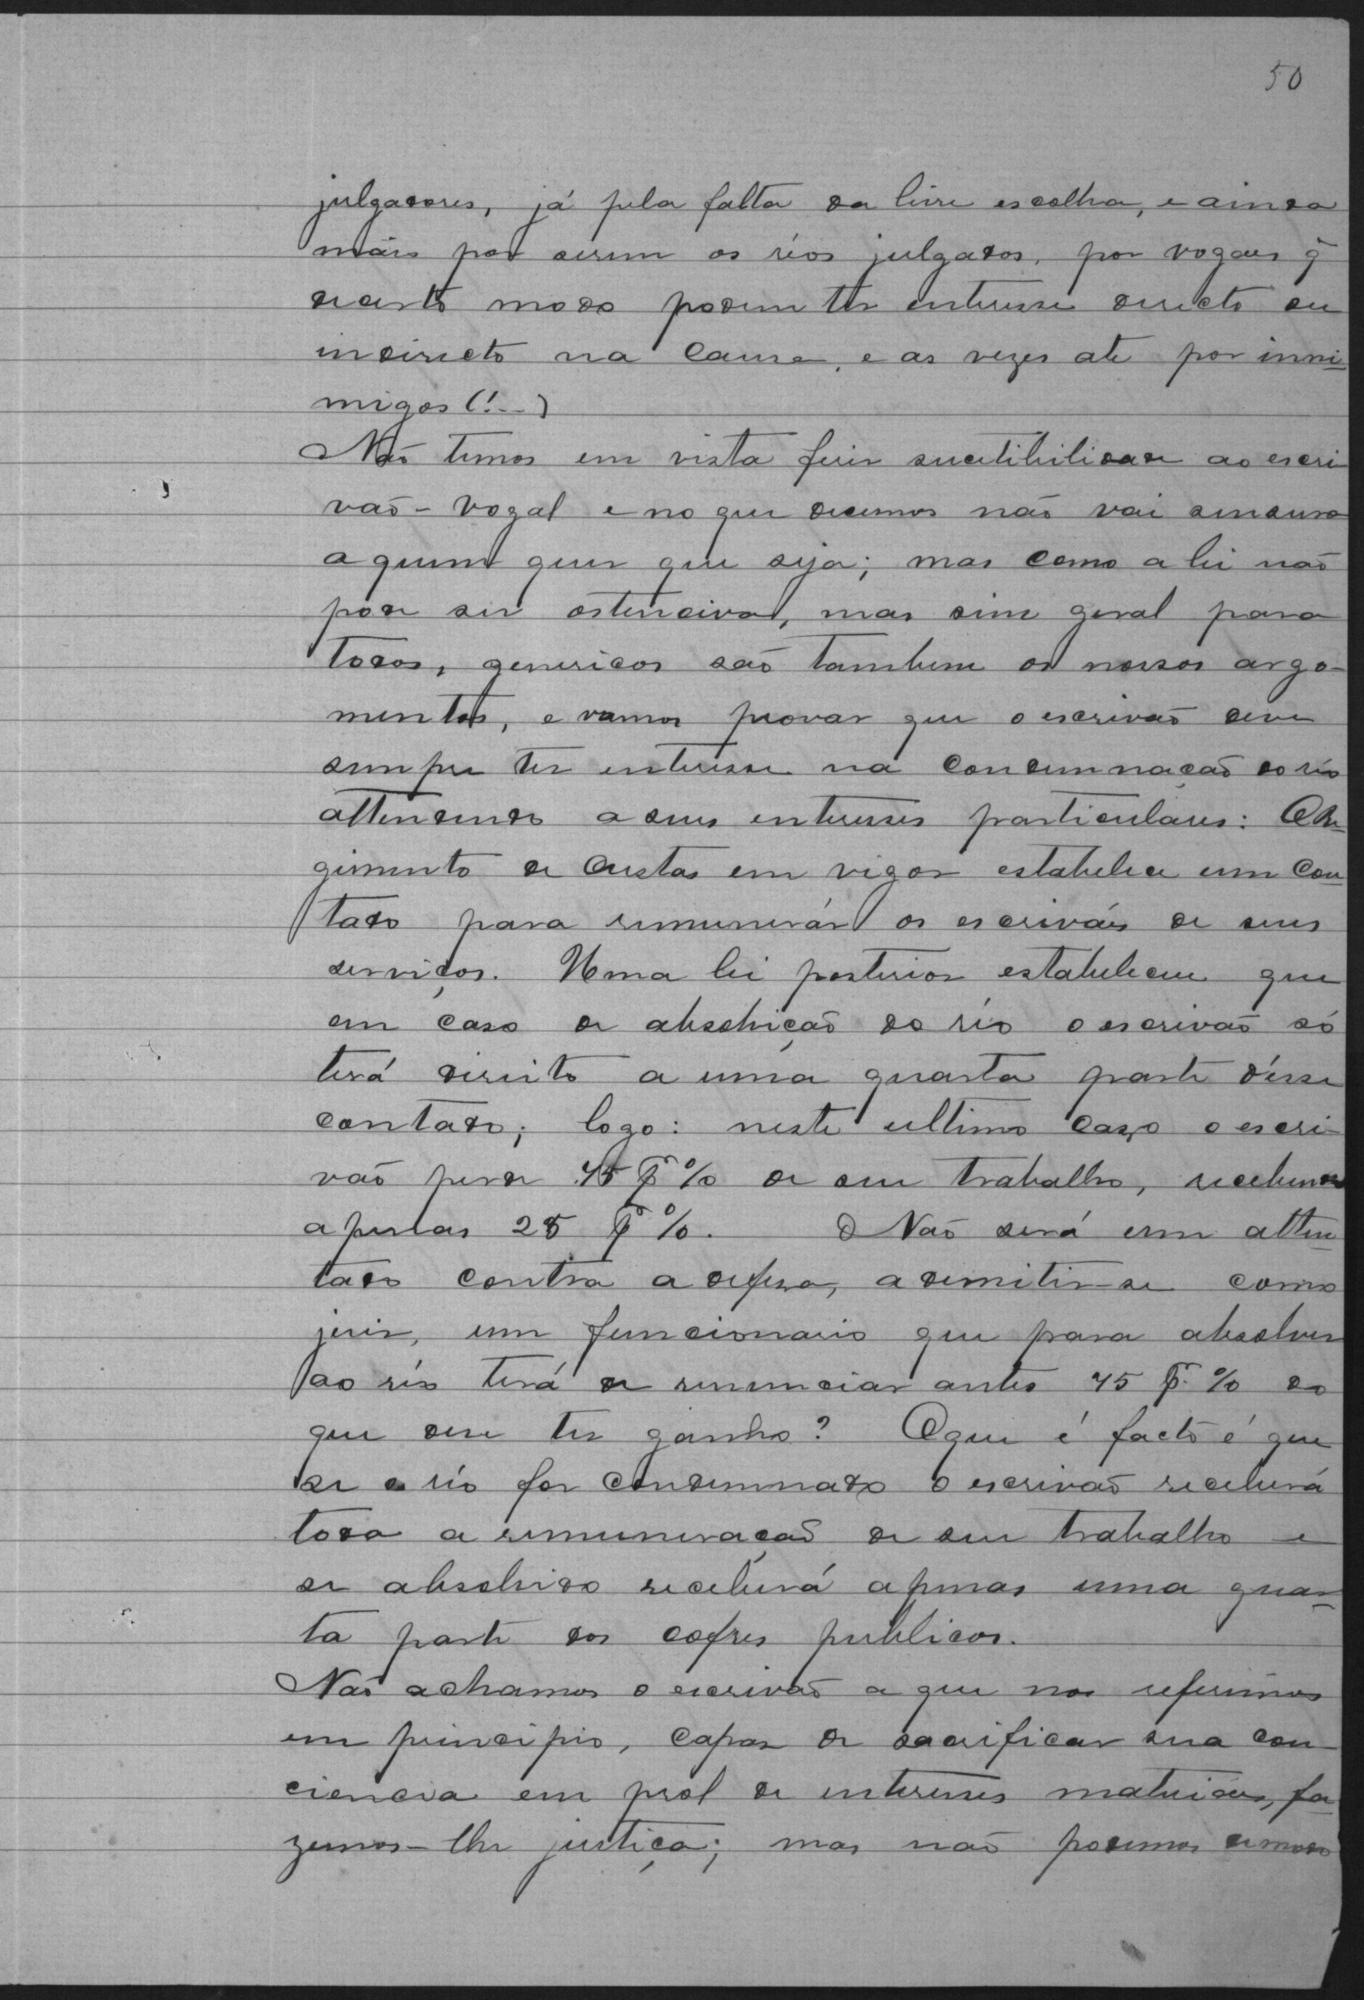 50
julgadores, já pela falta da livre escolha, e ainda
máis por serem os réos julgados, por vogaes q̃
de certo modo podem ter enteresse directo ou
indirecto na causa, e as vezes até por inni-
migos (!...)
Não temos em vista ferir sucetibilidade ao escri
vaõ-vogal e no que dizemos não vai sensura
a quem quer que seja; mas como a lei naõ
pode ser ostenciva, mas sim geral para
todos, genericos saõ tambem os nossos argo-
mentos, e vamos provar que o escrivaõ deve
sempre ter enteresse na condemnaçaõ do réo
attendendo a seus enteresses particulares: O Re-
gimento de custas em vigor estabelece um con-
tado para remunerár os escriváis de seus
serviços. Uma lei posterior estabeleceu que
em caso de absolviçaõ do réo o escrivaõ só
terá direito a uma quarta parte désse
contado; logo: neste ultimo caso o escri-
vaõ perde 75 p% de seu trabalho, recebendo
apenas 25 p%. Naõ será um atten-
tado contra a defesa,ademitir-se como
juiz, um funcionario que para absolver
ao réo terá de renunciar antes 75 p.% do
que deve ter ganho? O que é facto é que
se o réo for condemnado o escrivaõ receberá
toda a remuneraçaõ de seu trabalho e
se absolvido receberá apenas uma quar-
ta parte dos cofres publicos.
Naõ achamos o escrivaõ a que nos referimos
em principio, capas de sacrificar sua con-
ciencia em prol de enteresses materiáes, fa
zemos-lhe justiça; mas naõ podemos de modo